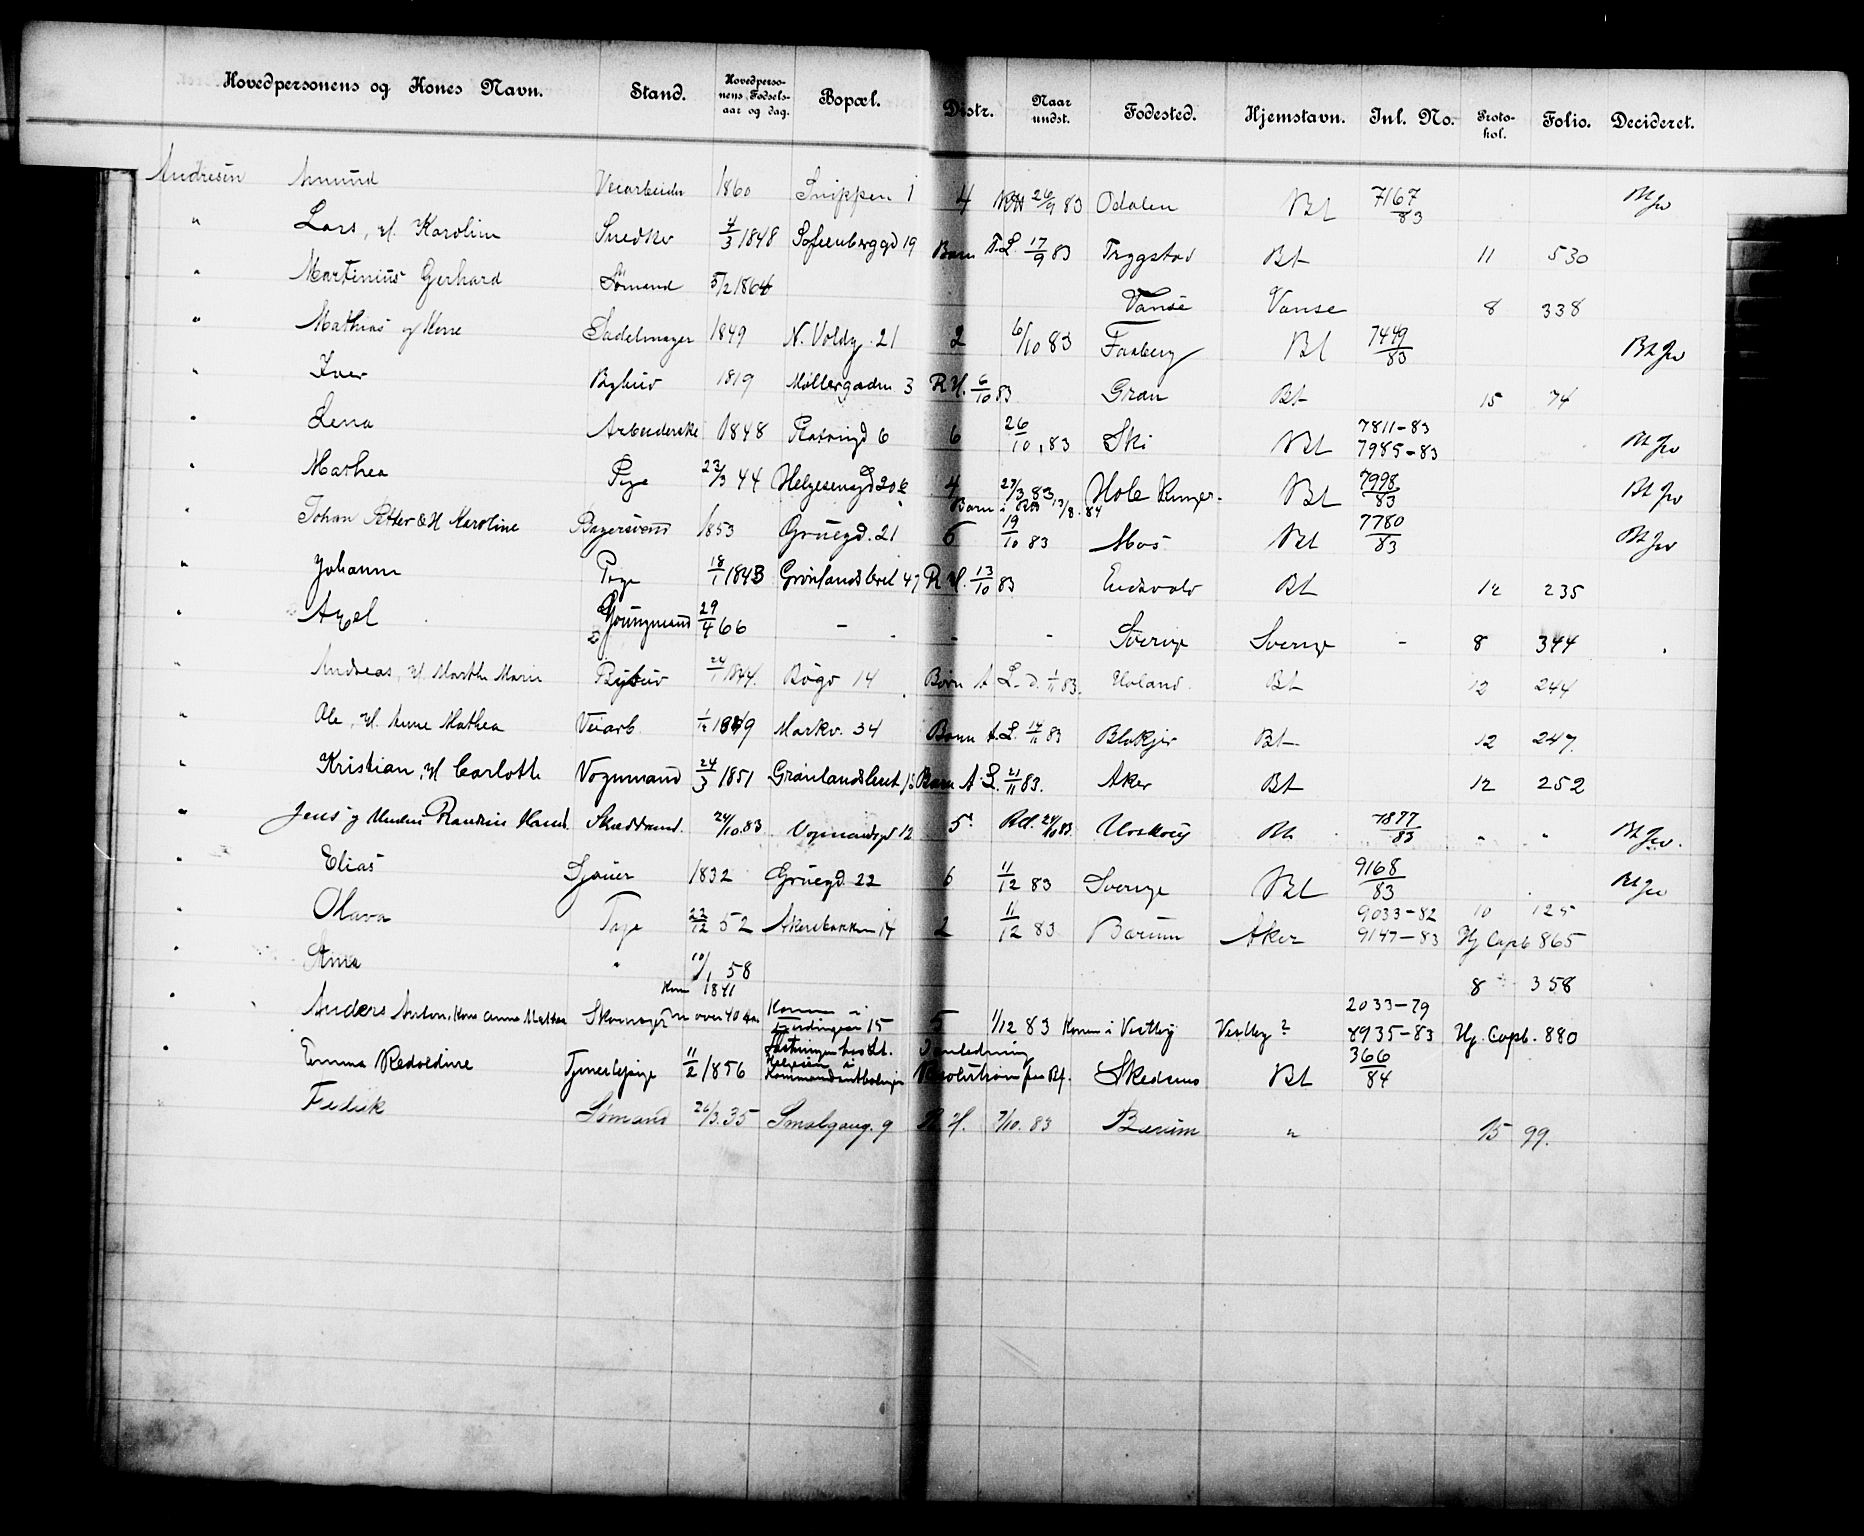 Hovedpersonens og Kones Navn. Stand. Hovedperso-nens Fødsels-aar og dag. Bopæl. Distr. Naar undst. Fødested. Hjemstavn. Inl. No. Proto-kol. Folio. Decideret.
Andresen Amund Veiarbeider 1860 Snippen 1 4 26/9 83 Odalen Bt 7167/83
" Lars, H. Karoline Snedker 4/3 1848 Sofienberggd 19 Barn T. L. 17/9 83 Trygstad Bt 11 530
" Martinius Gerhard Sømand 5/2 1864 Vanse Vanse 8 338
" Mathias og Kone Sadelmager 1849 N. Voldg. 21 2 6/10 83 Faaberg Bt 7449/83
" Iver Bybud 1819 Møllergaden 3 R. H. 6/10 83 Gran Bt 15 74
" Lena Arbeiderske 1848 6 26/10 83 Ski Bt 7811-83 7985-83
" Mathea Pige 23/3 44 Helgesensgd 20 4 27/3 83 Hole Ringer. Bt 7998/83
" Johan Petter & H Karoline Bagersvend 1853 Gruegd. 21 6 19/10 83 Mos Bt 7780/83
" Johanne Pige 18/1 1843 Grønlandsleret 47 R. H. 13/10 83 Eidsvold Bt 12 235
" Axel Youngmand 29/4 66 - - - Sverige Sverige - 8 344
" Andreas, H. Marthe Marie Bybud 24/1 1844. Bøgd 14 Barn A L. D. 1/11 83. Høland. Bt 12 244
" Ole, H. Anne Mathea Veiarb. 1849 Markv. 34 Barn A. L. 83 Blakjer Bt 12 247.
" Kristian, H Carlotte Vognmand 24/3 1851 Grønlandsleret Barn A. L. 21/11 83. Aker Bt 12 252
" Jens 24/10.83 Vognmandsgd 12 5 24/10 83. Bt. 7877/83 " "
" Elias Sjouer 1832 Gruegd. 22 6 11/12 83 Sverige Bt 9168/83
" Olava Pige 23/12 52 Akersbakken 14 2 11/12 83 Bærum Aker 9033-82 9147-83 10 125 Hj Copb 865
" Anna " 10/1 58 8 358
" Anders Anton, Kone Anne Mathea Skomager Kone 1841 over 40 aar Konen i 15 5 1/12 83 Konen i Vestby Vestby? 2033-79 8935-83 Hj. Copb. 880
" Emma Tjenestepige 11/2 1856 Skedsmo Bt 366/84
Fredrik Sømand 26/3. 35 Smalgang. 9 R. H. 7/10. 83 Bærum " 15 99.